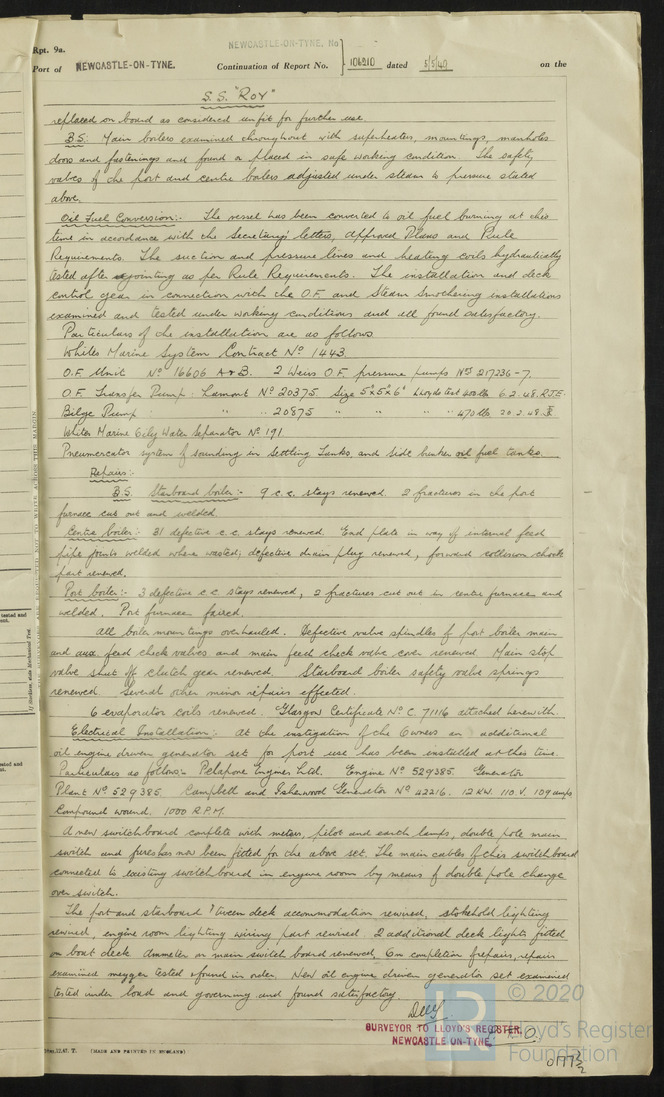 Rpt. 9a.
NEWCASTLE-ON-TYNE. No
Port of NEWCASTLE-ON-TYNE. Continuation of Report No. 106910 dated 5/5/49 on the
S.S. "ROY"
replaced on board as considered unfit for further use.
B.S: Main boilers examined throughout with superheaters, mountings, manholes
doors and fastenings and found or placed in safe working condition. The safety
valves of the port and centre boilers adjusted under steam to pressure stated
above.
Oil Fuel Conversion:- The vessel has been converted to oil fuel burning at this
time in accordance with the Secretary's letters, approved Plans and Rule
Requirements. The suction and pressure lines and heating coils hydraulically
tested after jointing as per Rule Requirements. The installation and deck
control gear in connection with the O.F. and Steam Smothering installations
examined and tested under working conditions and all found satisfactory.
Particulars of the installation are as follows
Whites Marine System Contract No 1443.
O.F. Unit No 16606 A & B. 2 Weirs O.F. pressure pumps Nos 217236-7.
O.F. Transfer Pump: Lamont No 20375. Size 5"x5"x6" Lloyds Test 400 lb 6.2.48. R.J.E.
Bilge Pump " " 20875 " " " 470 lb 20.2.48.
Whites Marine Oily Water Separator No 191
Pneumercator system of sounding in Settling Tanks, and side bunker oil fuel tanks.
Repairs:-
B.S. Starboard boiler:- 9 c.c. stays renewed. 2 fractures in the port
furnace cut out and welded.
Centre boiler:- 31 defective c.c. stays renewed. End plate in way of internal feed
pipe joints welded where wasted, defective drain plug renewed, forward collision chock
part renewed.
Port boiler:- 3 defective c c stays renewed, 2 fractures cut out in centre furnace and
welded. Port furnace faired.
All boiler mountings overhauled. Defective valve spindles of port boiler main
and aux. feed check valves and main feed check valve cover renewed. Main stop
valve shut off clutch gear renewed. Starboard boiler safety valve springs
renewed. Several other minor repairs effected.
6 evaporator coils renewed. Glasgow Certificate No C. 71116 attached herewith.
Electrical Installation:- At the instigation of the Owners an additional
oil engine driven generator set for port use has been installed at this time.
Particulars as follows:- Petapone Engines Ltd. Engine No 529385. Generator
Plant No 529385. Campbell and Isherwood Generator No 42216. 12 KW. 110 V. 109 amps
Compound wound. 1000 R.P.M.
A new switchboard complete with meters, pilot and earth lamps, double pole main
switch and fuses has now been fitted for the above set. The main cables of this switchboard
connected to existing switchboard in engine room by means of double pole change
over switch.
The port and starboard 'tween deck accommodation rewired, stokehold lighting
rewired, engine room lighting wiring part rewired. 2 additional deck lights fitted
on boat deck. Ammeter on main switch board renewed. On completion of repairs, repair
examined megger tested & found in order. New oil engine driven generator set examined
tested under load and governing and found satisfactory.
SURVEYOR TO LLOYD'S REGISTER,
NEWCASTLE-ON-TYNE.
© 2020
Lloyd's Register
Foundation
(MADE AND PRINTED IN ENGLAND)